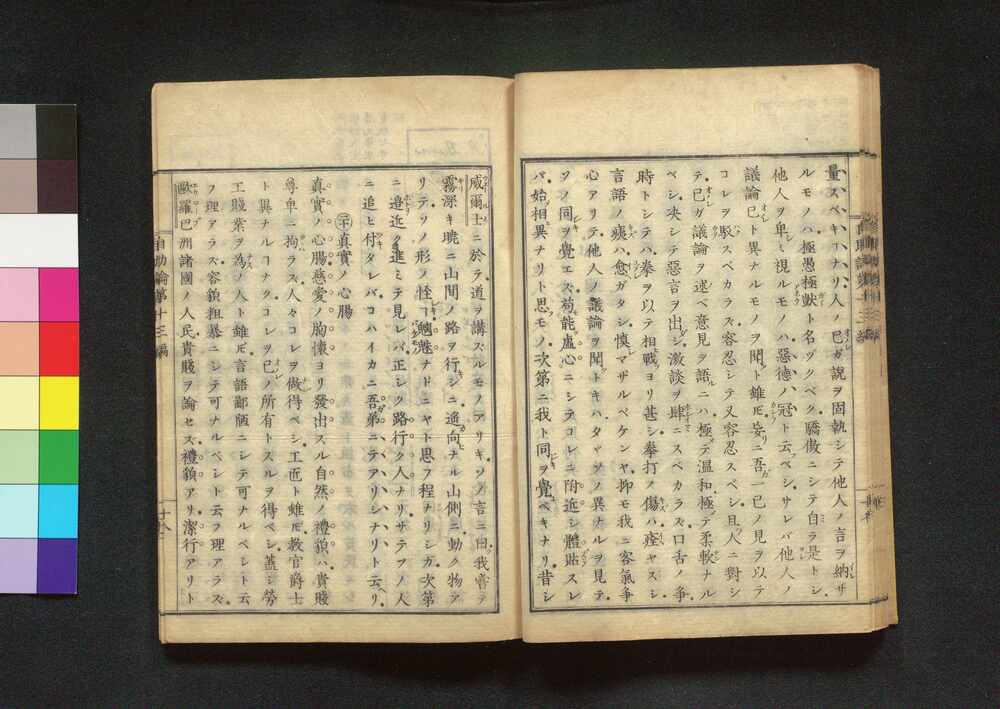 量スベキヿナリ人ノ己ガ說ヲ固執シテ他人ノ言ヲ納サ
ルモノハ極愚極獃ト名ヅクベク驕傲ニシテ自ラ是トシ
他人ヲ卑ミ視ルモノハ惡德ノ冠ト云ベシサレバ他人ノ
議論己ト異ナルモノヲ聞ト雖𪜈妄リニ吾一己ノ見ヲ以テ
コレヲ駁スベカラズ容忍シテ又容忍スベシ且人ニ對シ
テ己ガ議論ヲ述ベ意見ヲ語ニハ極テ溫和極テ柔軟ナル
ベシ決シテ惡言ヲ出シ激談ヲ肆ニスベカラズ口舌ノ爭
時トシテハ拳ヲ以テ相戰ヨリ甚シ拳打ノ傷ハ痊ヤスシ
言語ノ痍ハ愈ガタシ慎マザルベケンヤ抑モ我ニ客氣爭
心アリテ他人ノ議論ヲ聞トキハタヾソノ異ナルヲ見テ
ソノ同ヲ覺エズ苟能虛心ニシテコレニ附近シ體貼スレ
バ始相異ナリト思モノ次第ニ我ト同ヲ覺ベキナリ昔シ
威爾士ニ於テ道ヲ講スルモノアリキソノ言ニ曰我嘗テ
霧深キ曉ニ山間ノ路ヲ行シニ遥向ナル山側ニ動ク物ア
リテソノ形ノ怪ヿ魑魅ナドニヤト思フ程ナリシガ次第
ニ邉近ク進ミテ見レバ正シク路行ク人ナリサテソノ人
ニ追ヒ付タレバコハイカニ吾弟ニテアリシナリト云ヘリ
㊁十眞實ノ心腸
眞實ノ心腸慈愛ノ胸懷ヨリ發出スル自然ノ禮貌ハ貴賤
尊卑ニ拘ラズ人々コレヲ做得ベシ工匠ト雖𪜈敎官爵士
ト異ナルヿナクコレヲ己ノ所有トスルヲ得ベシ蓋シ勞
工賤業ヲ為ノ人ト雖𪜈言語鄙陋ニシテ可ナルベシト云
フ理アラズ容貌粗暴ニシテ可ナルベシト云フ理アラズ
歐羅巴洲諸國ノ人民貴賤ヲ論セズ禮貌アリ潔行アリト
自助論第十三編